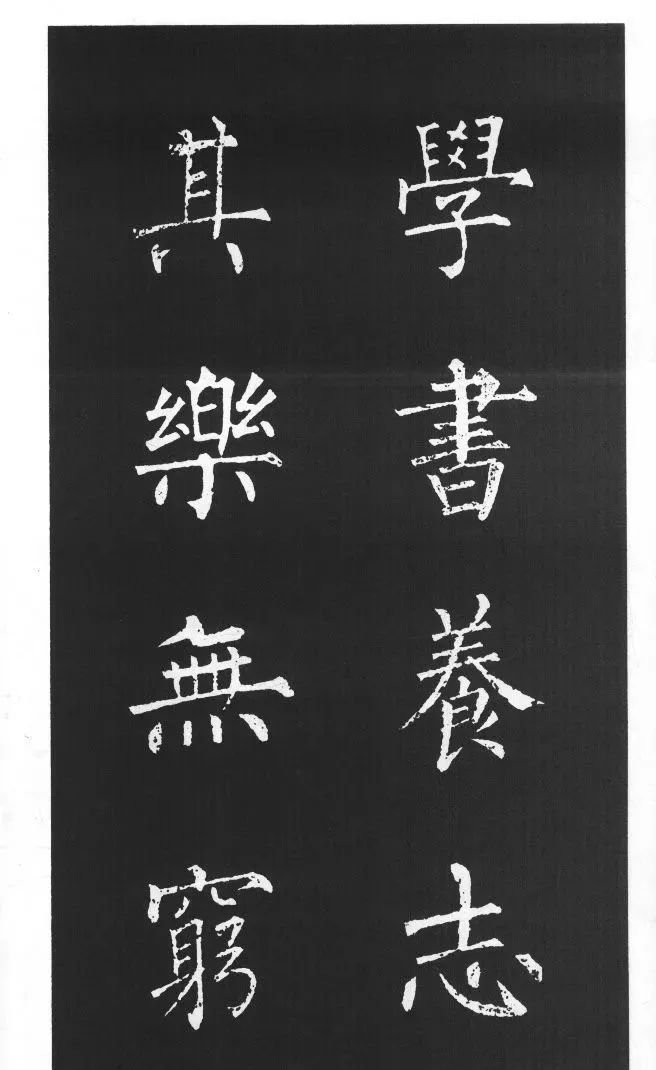 學書養志
其樂無窮